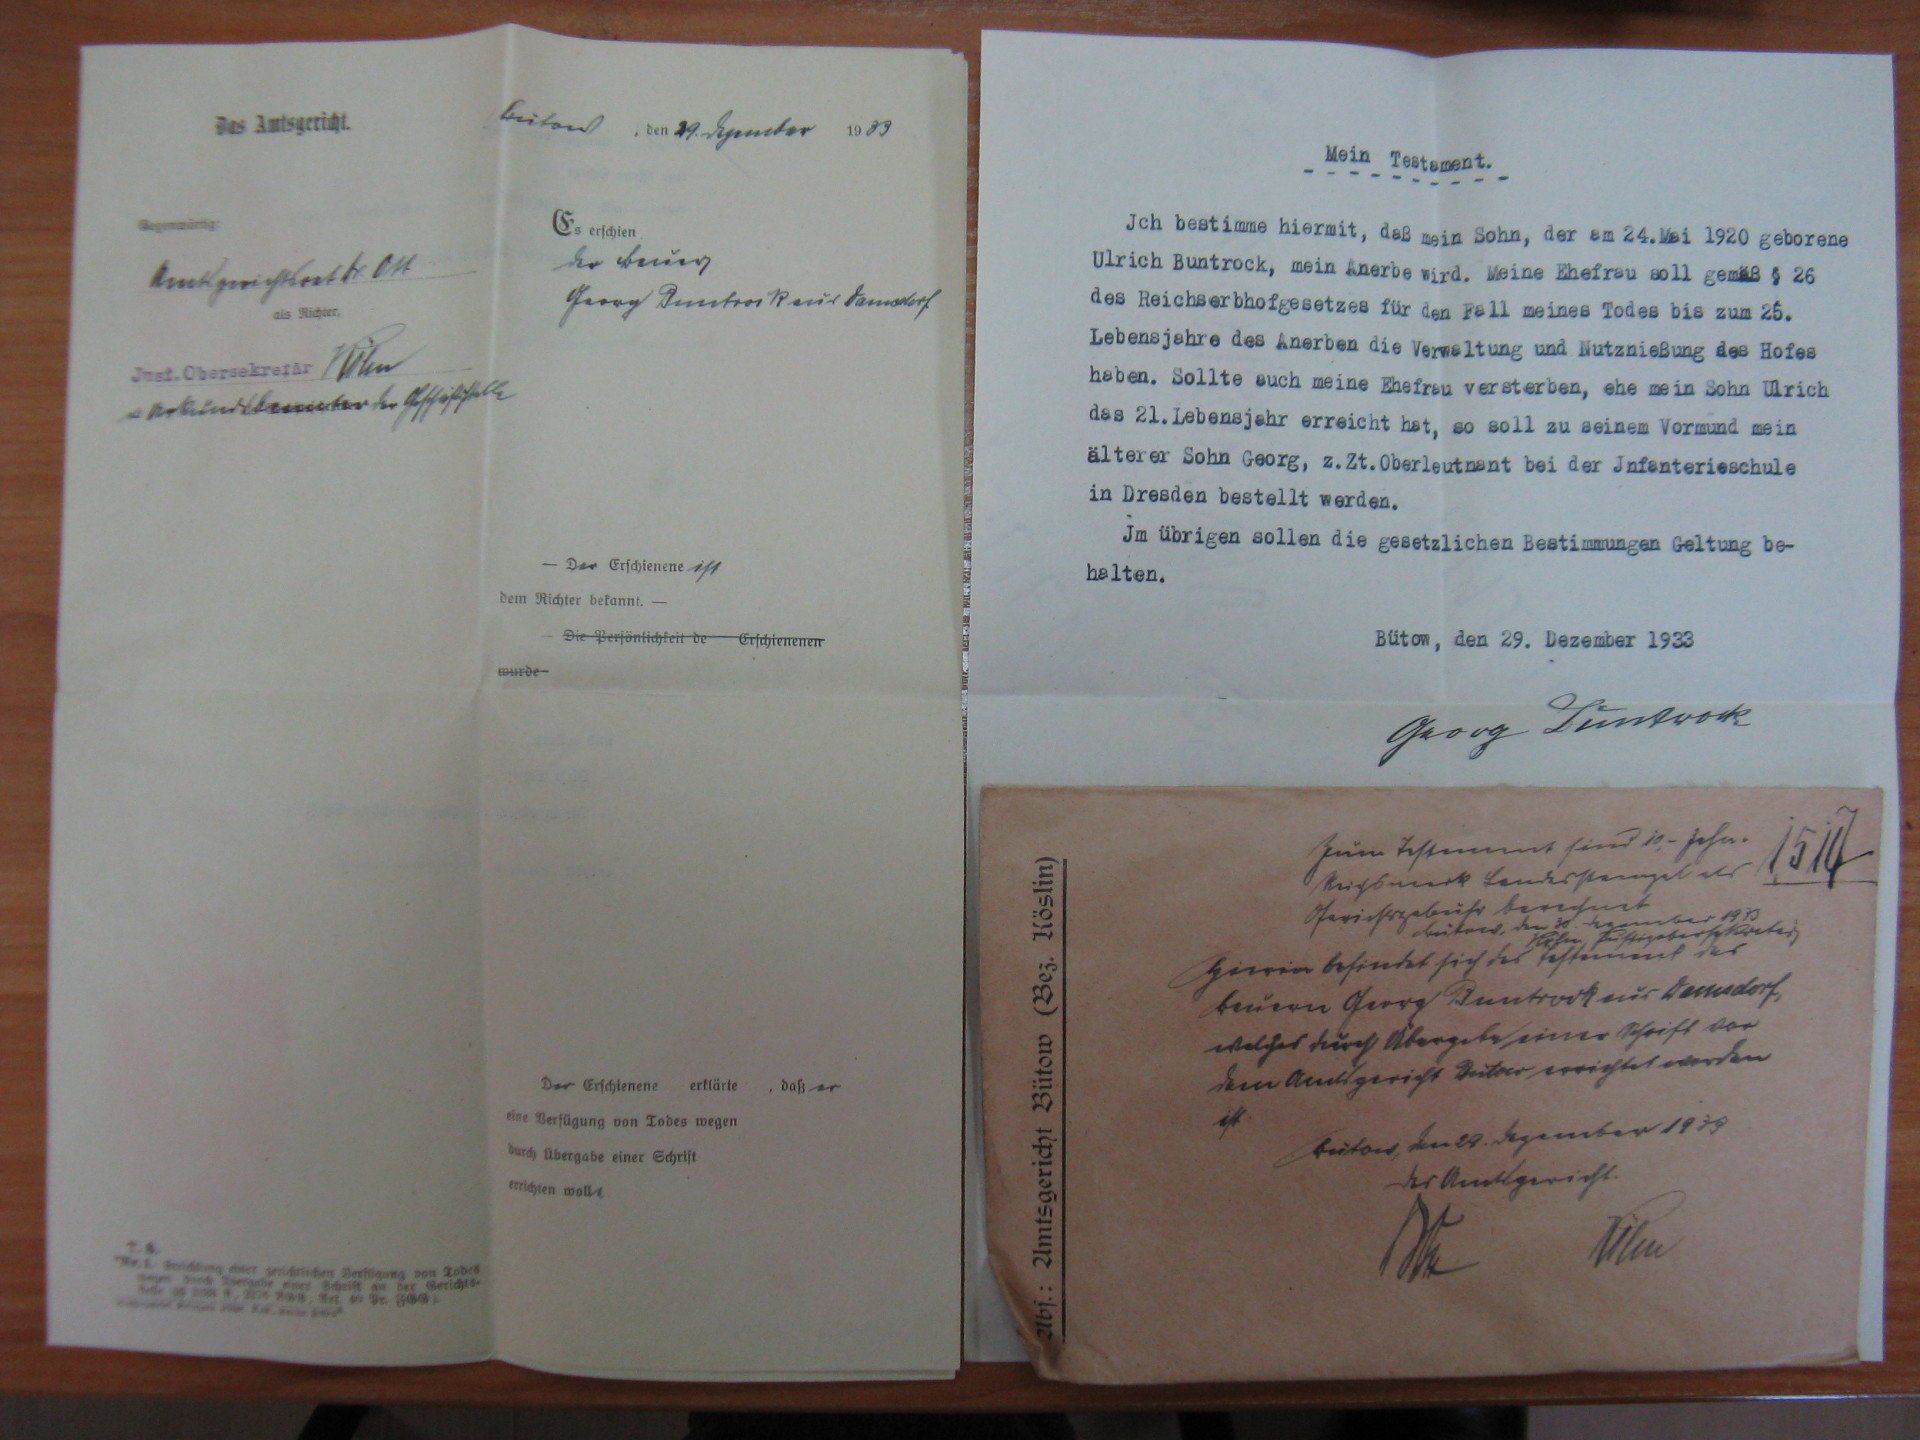 Das Amtsgericht.
Bütow, den 29. Dezember 1933
Gegenwärtig:
Amtsgerichtsrat Dr. Ott
als Richter,
Just.Obersekretär
als Urkundsbeamter der Geschäftsstelle
Es erschien
der Bauer
Georg Buntrock aus Damsdorf
— Der Erschienene ist
dem Richter bekannt. —
— Die Persönlichkeit de Erschienenen
wurde
Der Erschienene erklärte , daß er
eine Verfügung von Todes wegen
durch Übergabe einer Schrift
errichten wollt
Nr. 1. Errichtung einer gerichtlichen Verfügung von Todes
wegen durch Übergabe einer Schrift an der Gerichts-
Mein Testament.
Jch bestimme hiermit, daß mein Sohn, der am 24.Mai 1920 geborene
Ulrich Buntrock, mein Anerbe wird. Meine Ehefrau soll gemäß § 26
des Reichserbhofgesetzes für den Fall meines Todes bis zum 25.
Lebensjahre des Anerben die Verwaltung und Nutznießung des Hofes
haben. Sollte auch meine Ehefrau versterben, ehe mein Sohn Ulrich
das 21.Lebensjahr erreicht hat, so soll zu seinem Vormund mein
älterer Sohn Georg, z.Zt.Oberleutnant bei der Jnfanterieschule
in Dresden bestellt werden.
Jm übrigen sollen die gesetzlichen Bestimmungen Geltung be-
halten.
Bütow, den 29. Dezember 1933
Georg Buntrock
Abs.: Amtsgericht Bütow (Bez. Köslin)
Zum Testament sind 10,- Zehn
Reichsmark Landesstempel als
Gerichtsgebühr berechnet
Bütow, den 30. Dezember 1933
Justizobersekretär
Hierin befindet sich das Testament des
Bauern Georg Buntrock aus Damsdorf,
welches durch Übergabe einer Schrift vor
dem Amtsgericht Bütow errichtet worden
ist.
Bütow, den 29. Dezember 1933
Das Amtsgericht.
Ott